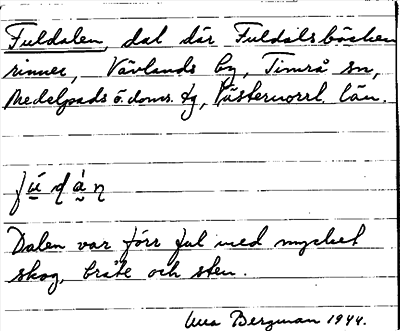 Fuldalen, dal där Fuldalsbäcken
rinner, Vävlands by, Timrå sn,
Medelpads ö. doms. tg, Västernorrl. län.
fú̱ḍá̱ṇ
Dalen var förr ful med mycket
skog, bråte och sten.
Bergman 1944.